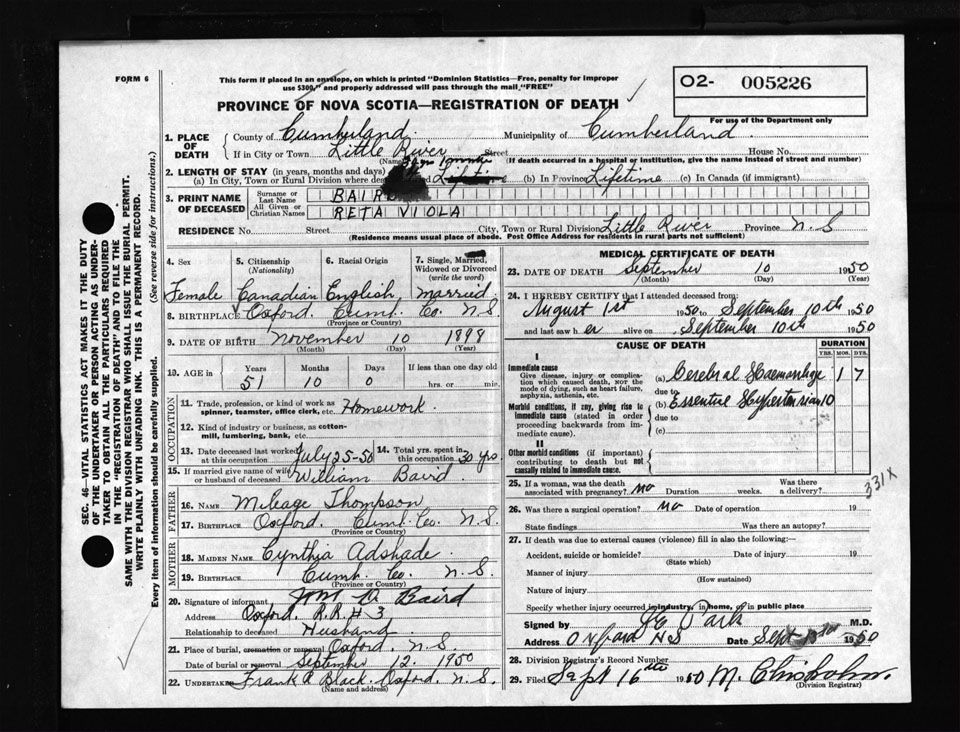 FORM 6
This form if placed in an envelope, on which is printed "Dominion Statistics—Free, penalty for improper
use $300," and properly addressed will pass through the mail "FREE"
O2- 005226
For use of the Department only
PROVINCE OF NOVA SCOTIA—REGISTRATION OF DEATH
1. PLACE OF DEATH
County of Cumberland Municipality of Cumberland
If in City or Town Little River Street House No.
(Name) (If death occurred in a hospital or institution, give the name instead of street and number)
2. LENGTH OF STAY (in years, months and days)
(a) In City, Town or Rural Division where death Lifetime (b) In Province Lifetime (c) In Canada (if immigrant)
3. PRINT NAME OF DECEASED
Surname or Last Name BAIRD
All Given or Christian Names RETA VIOLA
RESIDENCE No. Street City, Town or Rural Division Little River Province N. S
(Residence means usual place of abode. Post Office Address for residents in rural parts not sufficient)
4. Sex 5. Citizenship (Nationality) 6. Racial Origin 7. Single, Married, Widowed or Divorced (write the word)
Female Canadian English married
8. BIRTHPLACE Oxford. Cumb. Co. N. S
(Province or Country)
9. DATE OF BIRTH November 10 1898
(Month) (Day) (Year)
10. AGE in Years Months Days If less than one day old
51 10 0 hrs. or min.
OCCUPATION
11. Trade, profession or kind of work as
spinner, teamster, office clerk, etc. Homework.
12. Kind of industry or business, as cotton-
mill, lumbering, bank, etc.
13. Date deceased last worked at this occupation July 25-50 14. Total yrs. spent in this occupation 30 yrs.
15. If married give name of wife or husband of deceased William Baird
FATHER
16. NAME Mileage Thompson
17. BIRTHPLACE Oxford. Cumb. Co. N. S.
MOTHER
18. MAIDEN NAME Cynthia Adshade
19. BIRTHPLACE Cumb. Co. N. S.
(Province or Country)
20. Signature of informant Wm Baird
Address Oxford. R. R. # 3
Relationship to deceased Husband
21. Place of burial, cremation or removal Oxford. N. S.
Date of burial or removal September 12. 1950
22. Undertaker Frank Black. Oxford. N. S.
(Name and address)
MEDICAL CERTIFICATE OF DEATH
23. DATE OF DEATH September 10 1950
(Month) (Day) (Year)
24. I HEREBY CERTIFY that I attended deceased from:
August 1st 1950 to September 10th 1950
and last saw her alive on September 10th 1950
CAUSE OF DEATH DURATION
YRS. MOS. DYS.
I
Immediate cause
Give disease, injury or complica-
tion which caused death, NOT the
mode of dying, such as heart failure,
asphyxia, asthenia, etc.
(a) Cerebral Haemorrhage 1 7
due to
Morbid conditions, if any, giving rise to
immediate cause (stated in order
proceeding backwards from im-
mediate cause).
(b) Essential Hypertension 10
due to
(c)
II
Other morbid conditions (if important)
contributing to death but not
causally related to immediate cause.
25. If a woman, was the death associated with pregnancy? no Duration weeks. Was there a delivery?
331X
26. Was there a surgical operation? no Date of operation 19
State findings Was there an autopsy?
27. If death was due to external causes (violence) fill in also the following:—
Accident, suicide or homicide? Date of injury 19
(State which)
Manner of injury
(How sustained)
Nature of injury
Specify whether injury occurred in industry, in home, or in public place
Signed by Park M.D.
Address Oxford NS Date Sept 1950
28. Division Registrar's Record Number
29. Filed Sept 16th 1950 M. Chisholm.
(Division Registrar)
SEC. 46—VITAL STATISTICS ACT MAKES IT THE DUTY
OF THE UNDERTAKER OR PERSON ACTING AS UNDER-
TAKER TO OBTAIN ALL THE PARTICULARS REQUIRED
IN THE "REGISTRATION OF DEATH" AND TO FILE THE
SAME WITH THE DIVISION REGISTRAR WHO SHALL ISSUE THE BURIAL PERMIT.
WRITE PLAINLY WITH UNFADING INK. THIS IS A PERMANENT RECORD.
Every item of information should be carefully supplied. (See reverse side for instructions.)